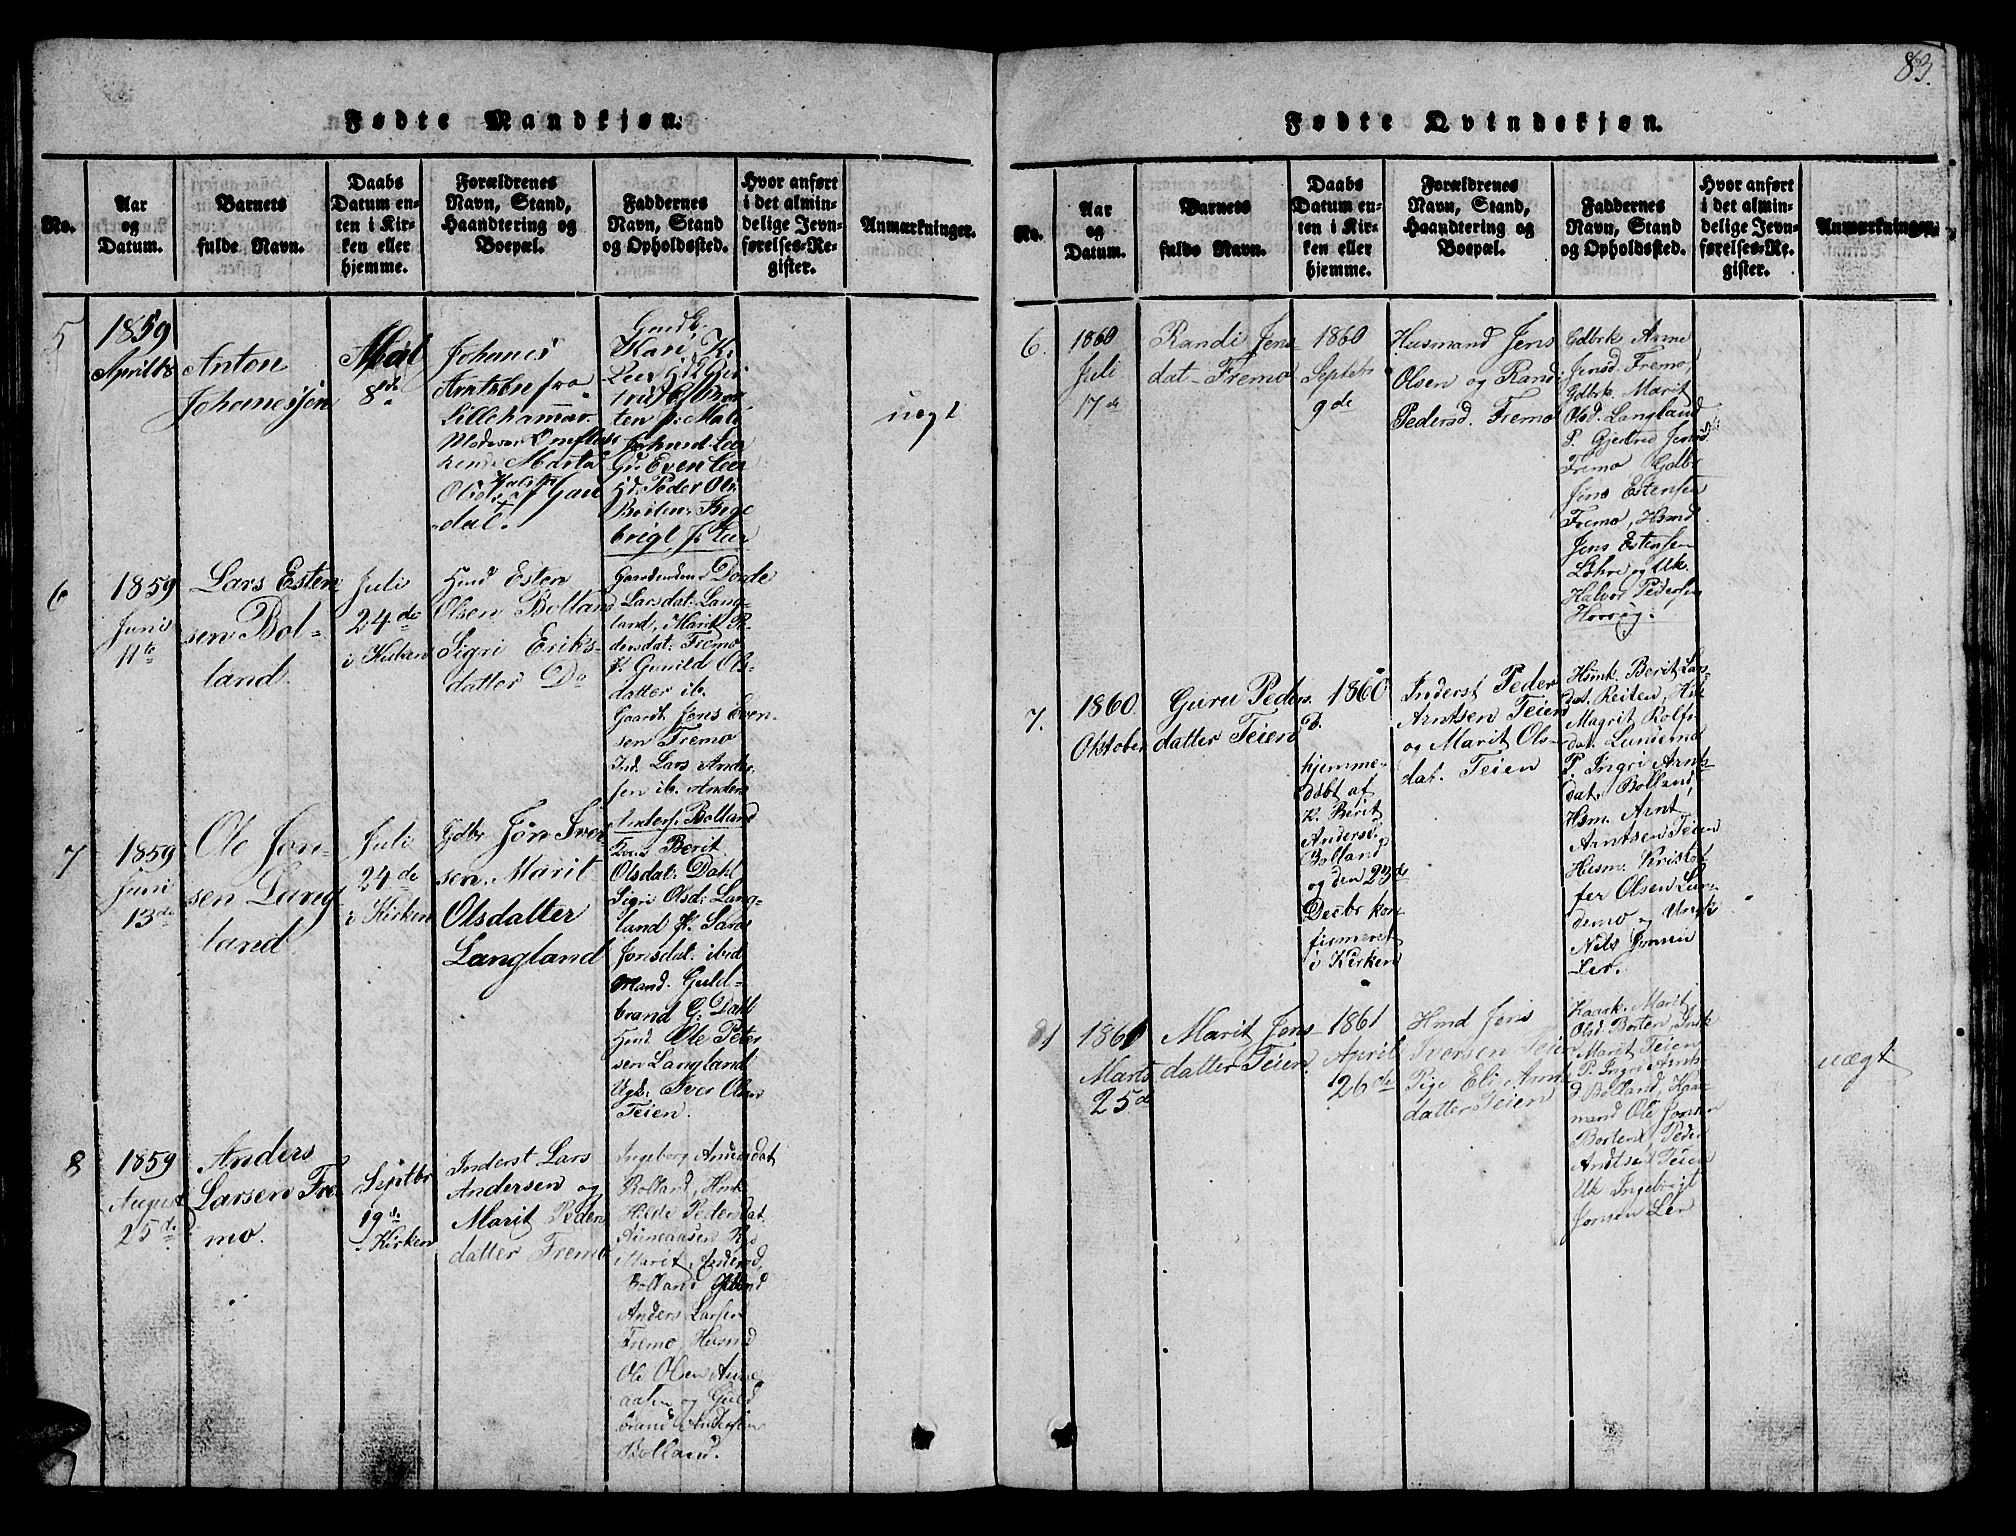 83.
Fødte Mandkjøn.
No.
Aar
og
Datum.
Barnets
fulde Navn.
Daabs
Datum en-
ten i Kir-
ken eller
hjemme.
Forældrenes
Navn, Stand,
Haandtering og
Boepæl.
Faddernes
Navn, Stand
og Opholdssted.
Hvor anført
i det almin-
delige Jevn-
førelses-Re-
gister.
Anmærkninger.
5
1859
April 18
Anton
Johanesjen
Mai
8de
Johanes
Arntsen fra
Lillehamar
Marta
dal.
Kari
Leer
ten f. Mali
Leer
Gr. Even Leer
Peder Ols.
brigt J. Leer
uægt
6
1859
Juni
11te
Lars Esten
sen Bol-
land
Juli
24de
i Kirken
Hmd Esten
Olsen Bolland
Sigri Eriks-
datter Do
Dorte
Larsdat. Lang-
land, Marit Pe-
dersdat. Fremo
P. Gunild Ols-
datter ib.
Gaardt. Jens Even-
sen Fremo
Ind. Lars Ander-
sen ib. Anders
Anders. Bolland
7
1859
Juni
13de
Ole Jon-
sen Lang
land
Juli
24de
i Kirken
Gdbr Jon Iver
sen. Marit
Olsdatter
Langland
Kone Berit
Olsdat: Dahl
Sigri Olsd: Lang-
land P. Sara
Jonsdat. ibid
Mand. Guld-
brand G: Dahl
Hmd Ole Peter
sen Langland
Ugk: Iver Olsen
Teien.
8
1859
August
25de
Anders
Larsen Fre
mo.
Septbr
19de
i Kirken
Inderst Lars
Andersen og
Marit Peders
datter Fremo
Ingeborg Andersdat
Bolland, Hmk
Hilde Pedersdat.
Auneaasen
Marit Andersd.
Bolland
Anders Larsen
Fremo Husmd
Ole Olsen Aune
aasen og Guld
brand Andersen
Bolland.
Fødte Qvindekjøn.
No.
Aar
og
Datum.
Barnets
fulde Navn.
Daabs
Datum en-
ten i Kir-
ken eller
hjemme.
Forældrenes
Navn, Stand,
Haandtering og
Boepæl.
Faddernes
Navn, Stand
og Opholdssted.
Hvor anført
i det almin-
delige Jevn-
førelses-Re-
gister.
Anmærkninger.
6.
1860
Juli
17de
Randi Jens
dat. Fremo
1860
Septebr
9de
Husmand Jens
Olsen og Randi
Pedersd. Fremo
Gdbrk Anne
Jensd. Fremo,
Gdbrk. Marit
Olsd. Langland
P. Gjertrud Jensd.
Fremo Gdbr
Jens Estensen
Fremo, Hsmd
Jens Estensen
Løhre og Uk.
Halvor Pedersen
Horsøg.
7.
1860
Oktober
Guru Peders
datter Teien
1860
D.
hjemme-
døbt af
K. Berit
Andersd.
Bolland
og den 23de
Decbr kon
firmeret
i Kirken
Inderst Peder
Arntsen Teien
og Marit Ols-
dat. Teien
Husmk. Berit Lars
dat. Reiten,
Magrit Rolfs
dat. Lundemo
P. Ingri Arnts-
dat. Bolland,
Hsm. Arnt
Arntsen Teien
Husm. Kristof
fer Olsen Lun-
demo og Ungk
Nils Jonsen
Ler.
8
1861
Marts
25de
Marit Jens
datter Teien
1861
April
26de
Hmd Jens
Iversen Teien
Pige Eli Arnt
datter Teien
Kaark. Marit
Olsd. Borten, Indk
Marit Teien
P. Ingri Arnts-
d Bolland, Kaar
mand Ole Jonsen
Borten, Peder
Arntsen Teien
Uk Ingebrigt
Jonsen Ler
uægt